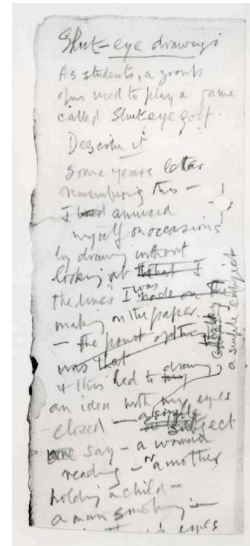 Shut-eye drawings
As students, a group
of us used to play a game
called Shut eye golf.
Describe it
Some years later
remembering this –
I had amused
myself on occasions
by drawing without
looking at that I
the lines I was made on
making on the paper.
– the point of the
was that
& this led to drawing
an idea with my eyes
closed – a simple subject
one say – a woman
reading – or a mother
holding a child –
a man smoking –
eyes
a simple subject